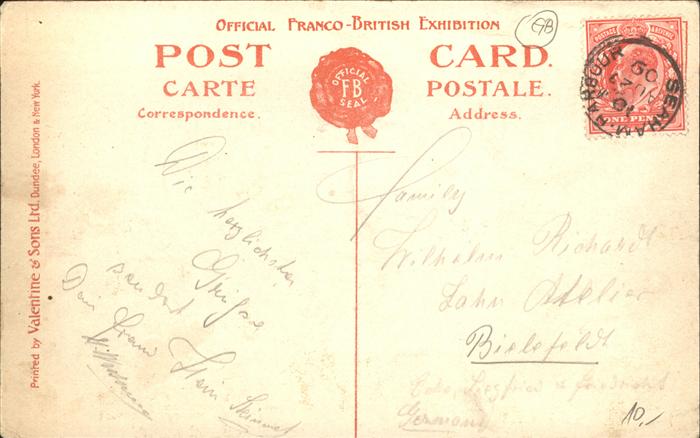 OFFICIAL FRANCO-BRITISH EXHIBITION
POST CARD.
CARTE POSTALE.
Correspondence. Address.
OFFICIAL
FB
SEAL
POSTAGE
ONE PENNY
SEAHAM-HARBOUR
Printed by Valentine & Sons Ltd. Dundee, London & New York.
Die
herzlichsten
Grüsse
sendet
Dein Franz
Family
Wilhelm Richardt
Zahn Atelier
Bielefeldt
Germany
10,-